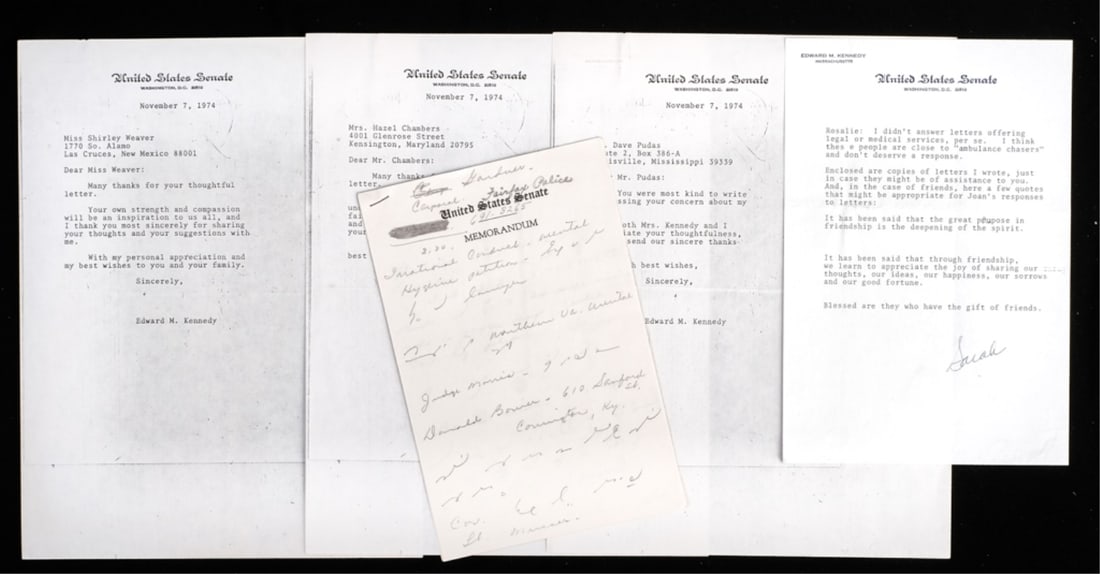 United States Senate
WASHINGTON, D.C. 20510
November 7, 1974
Miss Shirley Weaver
1770 So. Alamo
Las Cruces, New Mexico 88001
Dear Miss Weaver:
Many thanks for your thoughtful
letter.
Your own strength and compassion
will be an inspiration to us all, and
I thank you most sincerely for sharing
your thoughts and your suggestions with
me.
With my personal appreciation and
my best wishes to you and your family.
Sincerely,
Edward M. Kennedy
United States Senate
WASHINGTON, D.C. 20510
November 7, 1974
Mrs. Hazel Chambers
4001 Glenrose Street
Kensington, Maryland 20795
Dear Mr. Chambers:
Many thank
letter.
best
Gardner.
Corporal Fairfax Police
United States Senate
691-
MEMORANDUM
2:30.
Irrational conduct - mental
Hygiene petition - by
Northern Va. mental
Judge Morris -
Donald Bower - 610 Sanford
St.
Covington, Ky.
Cov.
Lt.
United States Senate
WASHINGTON, D.C. 20510
November 7, 1974
Dave Pudas
te 2, Box 386-A
isville, Mississippi 39339
Mr. Pudas:
You were most kind to write
ssing your concern about my
oth Mrs. Kennedy and I
iate your thoughtfulness,
send our sincere thanks
h best wishes,
Sincerely,
Edward M. Kennedy
EDWARD M. KENNEDY
MASSACHUSETTS
United States Senate
WASHINGTON, D.C. 20510
Rosalie: I didn't answer letters offering
legal or medical services, per se. I think
thes e people are close to "ambulance chasers"
and don't deserve a response.
Enclosed are copies of letters I wrote, just
in case they might be of assistance to you.
And, in the case of friends, here a few quotes
that might be appropriate for Joan's responses
to letters:
It has been said that the great purpose in
friendship is the deepening of the spirit.
It has been said that through friendship,
we learn to appreciate the joy of sharing our
thoughts, our ideas, our happiness, our sorrows
and our good fortune.
Blessed are they who have the gift of friends.
Sarah